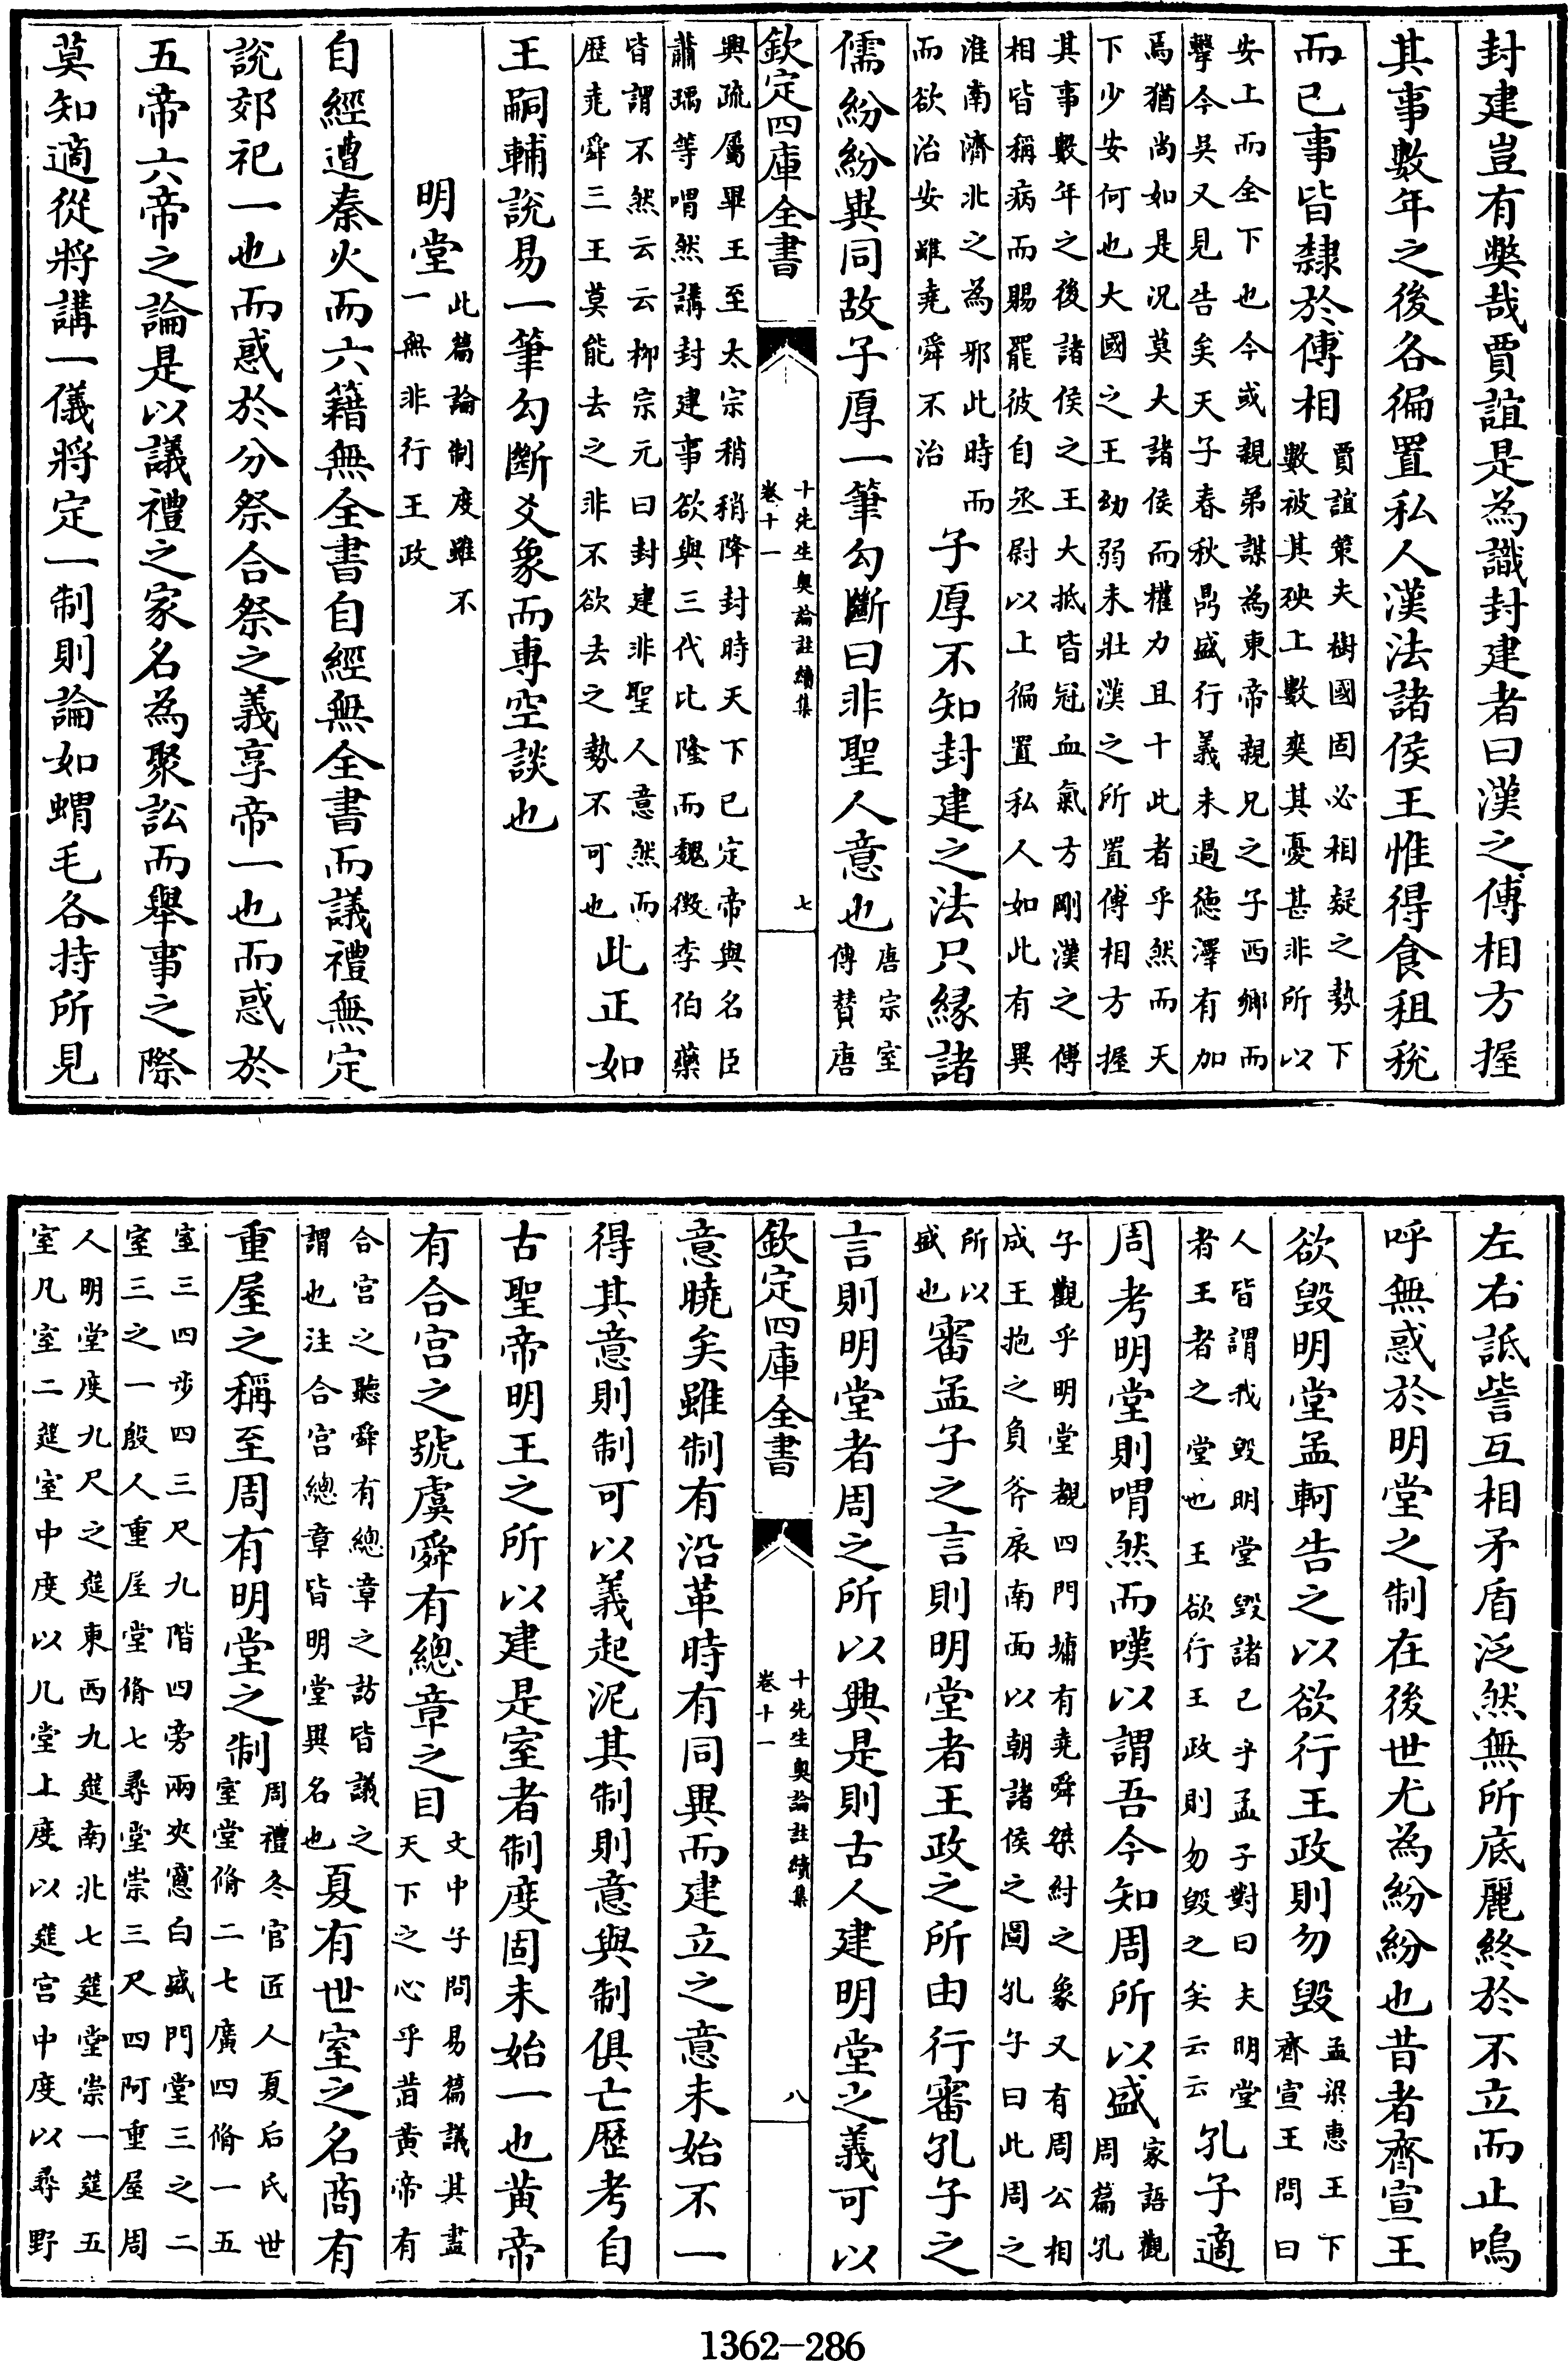 封建豈有獘哉賈誼是為識封建者曰漢之傅相方握
其事數年之後各徧置私人漢法諸侯王惟得食租稅
而已事皆隸於傅相賈誼策夫樹國固必相疑之勢下
數被其殃上數爽其憂甚非所以
安上而全下也今或親弟謀為東帝親兄之子西鄉而
擊今吳又見告矣天子春秋鼎盛行義未過德澤有加
焉猶尚如是况莫大諸侯而權力且十此者乎然而天
下少安何也大國之王幼弱未壯漢之所置傅相方握
其事數年之後諸侯之王大抵皆冠血氣方剛漢之傅
相皆稱病而賜罷彼自丞尉以上徧置私人如此有異
淮南濟北之為邪此時而
而欲治安雖堯舜不治
子厚不知封建之法只緣諸
儒紛紛異同故子厚一筆勾斷曰非聖人意也唐宗室
傳贊唐
欽定四庫全書
十先生奥論註續集
卷十一
七
興疏屬畢王至太宗稍稍降封時天下已定帝與名臣
蕭瑀等喟然講封建事欲與三代比隆而魏徵李伯藥
皆謂不然云云栁宗元曰封建非聖人意然而
歴堯舜三王莫能去之非不欲去之勢不可也
此正如
王嗣輔說易一筆勾斷爻象而專空談也
明堂此篇論制度雖不
一無非行王政
自經遭秦火而六籍無全書自經無全書而議禮無定
說郊祀一也而惑於分祭合祭之義享帝一也而惑於
五帝六帝之論是以議禮之家名為聚訟而舉事之際
莫知適從將講一儀將定一制則論如蝟毛各持所見
左右詆訾互相矛盾泛然無所底麗終於不立而止嗚
呼無惑於明堂之制在後世尤為紛紛也昔者齊宣王
欲毀明堂孟軻告之以欲行王政則勿毀孟梁惠王下
齊宣王問曰
人皆謂我毀明堂毀諸已乎孟子對曰夫明堂
者王者之堂也王欲行王政則勿毀之矣云云
孔子適
周考明堂則喟然而嘆以謂吾今知周所以盛家語觀
周篇孔
子觀乎明堂覩四門墉有堯舜桀紂之象又有周公相
成王抱之負斧扆南面以朝諸侯之圖孔子曰此周之
所以
盛也
審孟子之言則明堂者王政之所由行審孔子之
言則明堂者周之所以興是則古人建明堂之義可以
欽定四庫全書
十先生奥論註續集
卷十一
八
意曉矣雖制有沿革時有同異而建立之意未始不一
得其意則制可以義起泥其制則意與制俱亡歴考自
古聖帝明王之所以建是室者制度固未始一也黄帝
有合宫之號虞舜有總章之目文中子問易篇議其盡
天下之心乎昔黄帝有
合宫之聽舜有總章之訪皆議之
謂也注合宫總章皆明堂異名也
夏有世室之名商有
重屋之稱至周有明堂之制周禮冬官匠人夏后氏世
室堂脩二七廣四脩一五
室三四步四三尺九階四旁兩夾窻白盛門堂三之二
室三之一殷人重屋堂脩七尋堂崇三尺四阿重屋周
人明堂度九尺之筵東西九筵南北七筵堂崇一筵五
室凡室二筵室中度以几堂上度以筵宫中度以尋野
1362-286